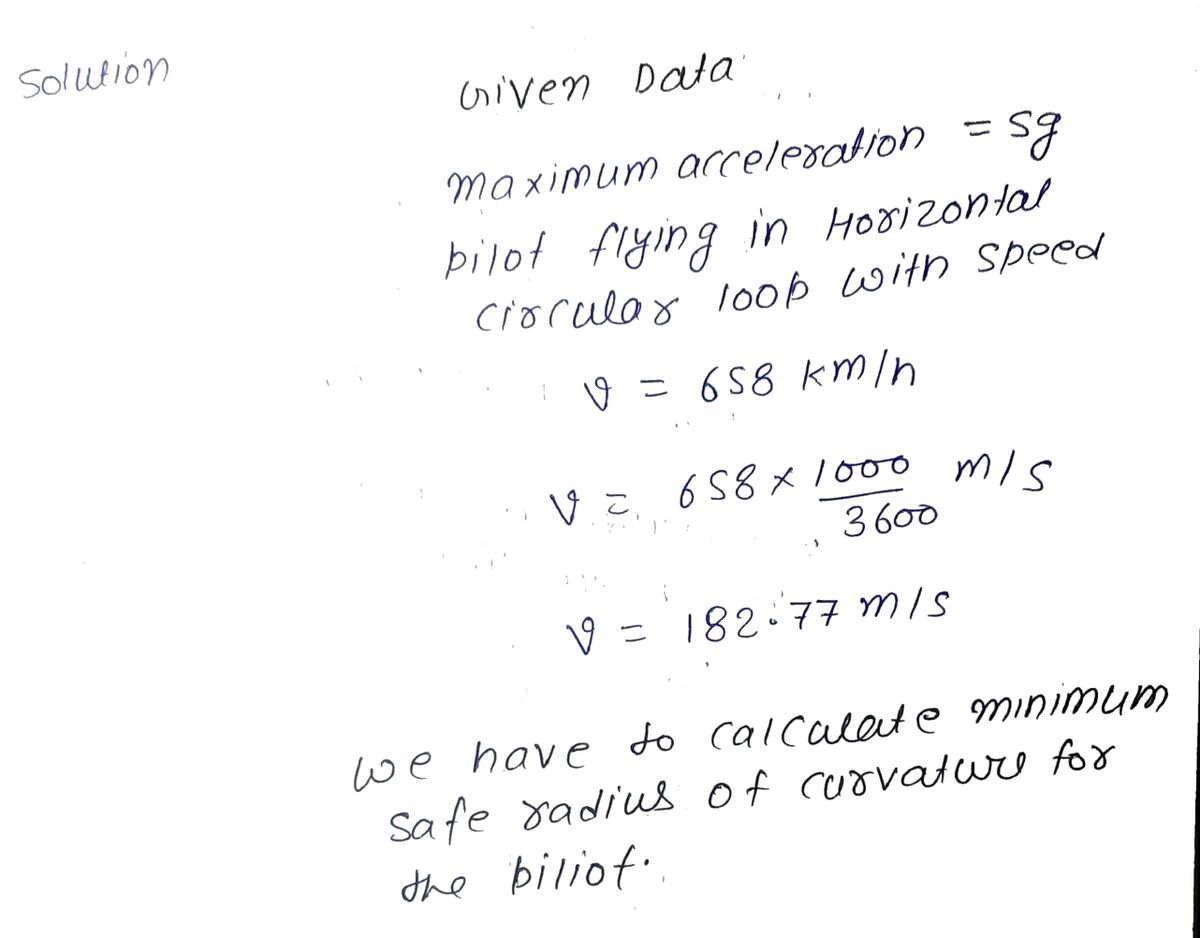 Solution
Given Data
maximum acceleration = 5g
pilot flying in Horizontal
circular loop with speed
v = 658 km/h
v = 658 × 1000/3600 m/s
v = 182.77 m/s
we have to calculate minimum
safe radius of curvature for
the piliot.